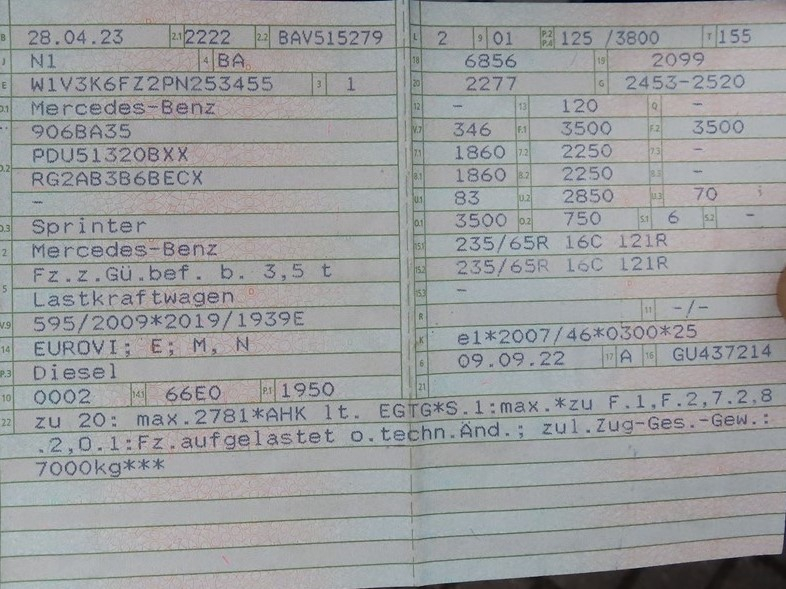 B 28.04.23 2.1 2222 2.2 BAV515279
J N1 4 BA
E W1V3K6FZ2PN253455 3 1
D.1 Mercedes-Benz
906BA35
D.2 PDU51320BXX
RG2AB3B6BECX
–
D.3 Sprinter
2 Mercedes-Benz
5 Fz.z.Gü.bef. b. 3,5 t
Lastkraftwagen
V.9 595/2009*2019/1939E
14 EUROVI; E; M, N
P.3 Diesel
10 0002 14.1 66E0 P.1 1950
L 2 9 01 P.2 P.4 125 /3800 T 155
18 6856 19 2099
20 2277 G 2453-2520
12 – 13 120 Q –
V.7 346 F.1 3500 F.2 3500
7.1 1860 7.2 2250 7.3 –
8.1 1860 8.2 2250 8.3 –
U.1 83 U.2 2850 U.3 70
O.1 3500 O.2 750 S.1 6 S.2 –
15.1 235/65R 16C 121R
15.2 235/65R 16C 121R
15.3 –
R 11 –/–
K e1*2007/46*0300*25
6 09.09.22 17 A 16 GU437214
21
22 zu 20: max.2781*AHK lt. EGTG*S.1:max.*zu F.1,F.2,7.2,8
.2,O.1:Fz.aufgelastet o.techn.Änd.; zul.Zug-Ges.-Gew.:
7000kg***